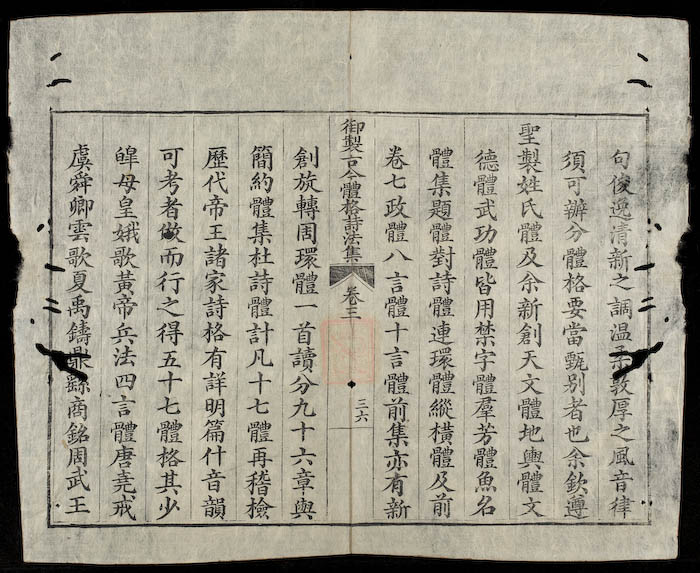 句俊逸清新之調温柔敦厚之風音律
須可辦分體格要當甄别者也余欽遵
聖製姓氏體及余新創天文體地輿體文
德體武功體皆用禁字體羣芳體魚名
體集題體對詩體連環體縱橫體及前
卷七政體八言體十言體前集亦有新
御製古今體格詩法集
卷三
三六
創旋轉周環體一首讀分九十六章與
簡約體集杜詩體計凡十七體再稽檢
歷代帝王諸家詩格有詳明篇什音韻
可考者倣而行之得五十七體格其少
皞母皇娥歌黃帝兵法四言體唐堯戒
虞舜卿雲歌夏禹鑄鼎繇商銘周武王